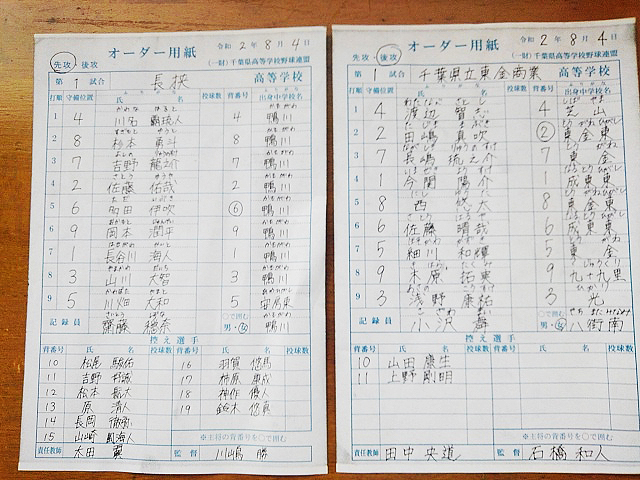 オーダー用紙
令和 2年 8月 4日
先攻・後攻
(一財)千葉県高等学校野球連盟
第 1 試合 長狭 高等学校
打順 守備位置 氏 名 投球数 背番号 出身中学校名
1 4 川名 4 鴨川
2 8 杉本 勇斗 8 鴨川
3 7 吉野 龍之介 7 鴨川
4 2 佐藤 佑哉 2 鴨川
5 6 多田 伊吹 6 鴨川
6 9 岡本 潤平 9 鴨川
7 1 長谷川 海人 1 鴨川
8 3 山川 大智 3 鴨川
9 5 川畑 大和 5 安房東
記録員 齋藤 穂奈 ○で囲む 男・女 鴨川
控え選手
背番号 氏 名 投球数 背番号 氏 名 投球数
10 松尾 駿佑 16 羽賀 悠馬
11 吉野 17 柿原
12 松本 18 神作 優人
13 原 清人 19 鈴木 悠真
14 長岡
15 山崎 ※主将の背番号を○で囲む
責任教師 本田 翼 監督 川嶋 勝
オーダー用紙
令和 2年 8月 4日
先攻・後攻
(一財)千葉県高等学校野球連盟
第 1 試合 千葉県立東金商業 高等学校
打順 守備位置 氏 名 投球数 背番号 出身中学校名
1 4 渡辺 智 4 芝山
2 2 田嶋 真吹 2 東金東
3 7 長嶋 琉之介 7 東金
4 1 今関 陽介 1 成東東
5 8 西 悠大 8 東金東
6 6 佐藤 晴哉 6 成東東
7 5 細川 和輝 5 東金
8 9 木原 拓東 9 九十九里
9 3 浅野 康祐 3 光
記録員 小沢 ○で囲む 男・女 八街南
控え選手
背番号 氏 名 投球数 背番号 氏 名 投球数
10 山田 康生
11 上野 剛明
※主将の背番号を○で囲む
責任教師 田中 央道 監督 石橋 和人